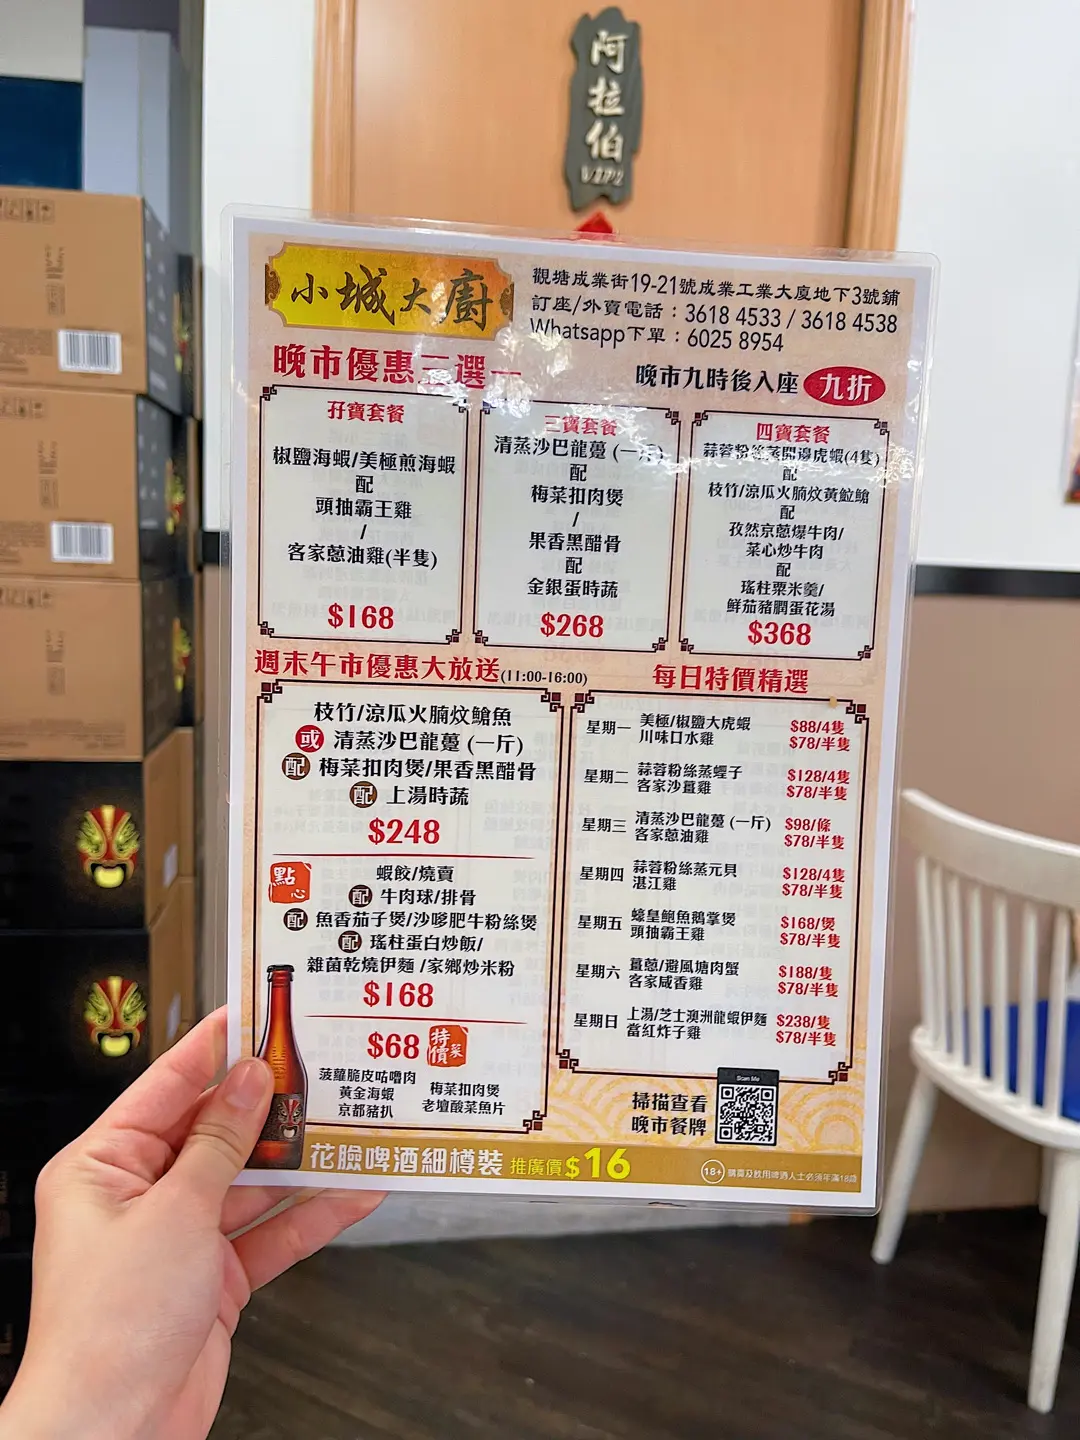 阿拉伯
VIP2
小城大廚
觀塘成業街19-21號成業工業大廈地下3號鋪
訂座/外賣電話：3618 4533 / 3618 4538
Whatsapp下單：6025 8954
晚市優惠三選一
晚市九時後入座 九折
孖寶套餐
椒鹽海蝦/美極煎海蝦
配
頭抽霸王雞
/
客家蔥油雞(半隻)
$168
三寶套餐
清蒸沙巴龍躉 (一斤)
配
梅菜扣肉煲
/
果香黑醋骨
配
金銀蛋時蔬
$268
四寶套餐
蒜蓉粉絲蒸開邊虎蝦(4隻)
配
枝竹/涼瓜火腩炆黃䱽鱠
配
孜然京蔥爆牛肉/
菜心炒牛肉
配
瑤柱粟米羹/
鮮茄豬膶蛋花湯
$368
週末午市優惠大放送(11:00-16:00)
枝竹/涼瓜火腩炆鱠魚
或 清蒸沙巴龍躉 (一斤)
配 梅菜扣肉煲/果香黑醋骨
配 上湯時蔬
$248
點心
蝦餃/燒賣
配 牛肉球/排骨
配 魚香茄子煲/沙嗲肥牛粉絲煲
配 瑤柱蛋白炒飯/
雜菌乾燒伊麵 /家鄉炒米粉
$168
$68 特價菜
菠蘿脆皮咕嚕肉
黃金海蝦
京都豬扒
梅菜扣肉煲
老壇酸菜魚片
每日特價精選
星期一 美極/椒鹽大虎蝦 $88/4隻
川味口水雞 $78/半隻
星期二 蒜蓉粉絲蒸蟶子 $128/4隻
客家沙薑雞 $78/半隻
星期三 清蒸沙巴龍躉 (一斤) $98/條
客家蔥油雞 $78/半隻
星期四 蒜蓉粉絲蒸元貝 $128/4隻
湛江雞 $78/半隻
星期五 蠔皇鮑魚鵝掌煲 $168/煲
頭抽霸王雞 $78/半隻
星期六 薑蔥/避風塘肉蟹 $188/隻
客家咸香雞 $78/半隻
星期日 上湯/芝士澳洲龍蝦伊麵 $238/隻
當紅炸子雞 $78/半隻
掃描查看
晚市餐牌
Scan Me
花臉啤酒細樽裝 推廣價$16
18+ 購買及飲用啤酒人士必須年滿18歲